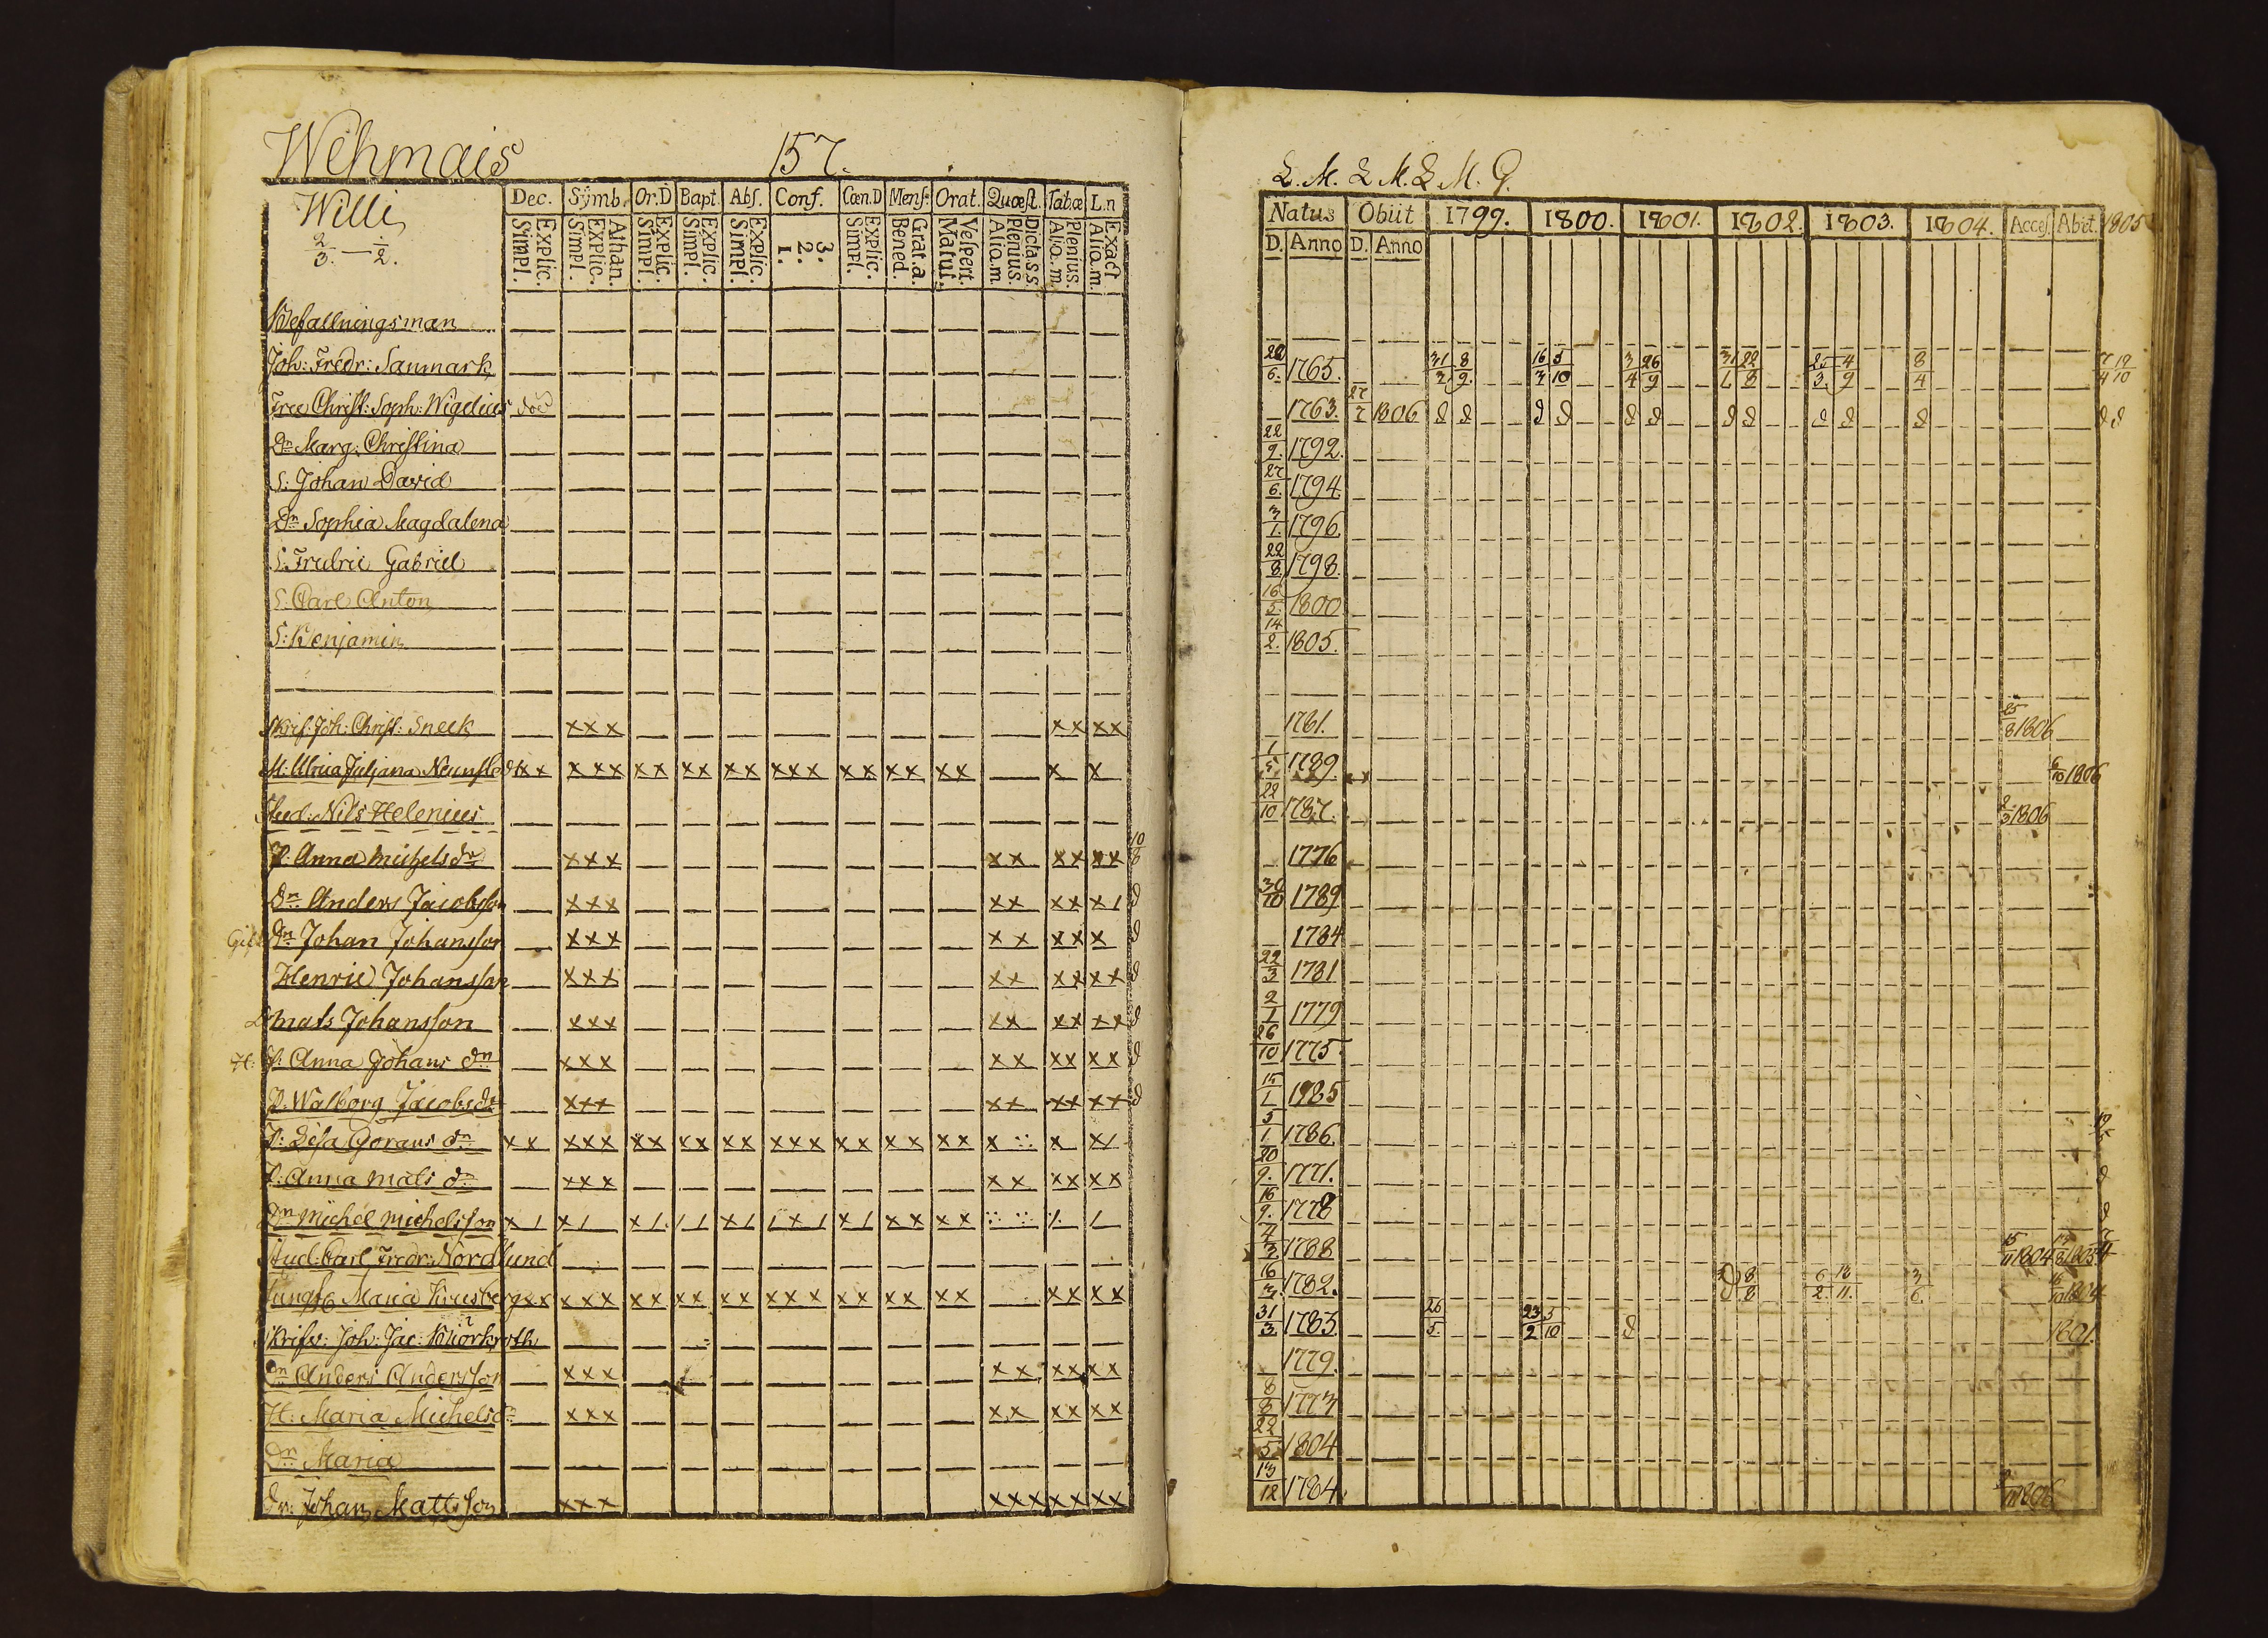 Wehmais 157.
Willi
2/3. — 1/2.
Dec. Symb. Or.D Bapt. Abs. Conf. Cœn.D Mens. Orat. Quæst. Tab.œ L.n
Explic. Simpl. Athan. Explic. Simpl. Explic. Simpl. Explic. Simpl. Explic. Simpl. 3. 2. 1. Explic. Simpl. Grat.a. Bened. Vespert. Matut. Dicta.s.s Plenius. Aliq.m Plenius. Aliq.m Exact Aliq.m
Befallningsman
Joh: Fredr: Sanmark
Fru Christ: Soph: Wigelius död
Dr Marg: Christina
S: Johan David
Dr Sophia Magdalena
S: Fredric Gabriel
S: Carl Anton
S: Benjamin
Skrif: Joh: Christ: Sneek xxx xx xx
M: Ulrica Juljana xx xxx xx xx xx xxx xx xx xx x x
Stud: Nils Helenius
P: Anna Michelsdr xxx xx xx xx 10/8
Dr Anders Jacobsson xxx xx xx x/ d
Dr Johan Johansson xxx xx xx x d
Henric Johansson xxx xx xx xx d
Mats Johansson xxx xx xx xx d
H: P: Anna Johans dr xxx xx xx xx d
P: Walborg Jacobsdr xxx xx xx xx d
P: Lisa Görans dr xx xxx xx xx xx xxx xx xx xx x x x/
P: Anna Mats dr xxx xx xx xx
Dn Michel Michelsson x/ x/ x/ // x/ /x/ x/ xx xx
Stud: Carl Fredr: Nordlund
Jungfr Maria xx xxx xx xx xx xxx xx xx xx xx xx
Skrifv: Joh: Jac: Björkroth
Dn Anders Andersson xxx xx xx xx
H: Maria Michelsdr xxx xx xx xx
Dr Maria
Dr: Johan Mattsson xxx xxx xx xx
L. M. L M. L M. Q.
Natus Obiit 1799. 1800. 1801. 1802. 1803. 1804. Acces. Abiit. 1805
D. Anno D. Anno
6. 1765. 31/3 8/9 16/3 5/10 3/4 26/9 31/1 22/8 25/3 4/9 8/4 7/4 19/10
1763. 27/7 1806 d d d d d d d d d d d d d
22/9. 1792.
27/6. 1794
3/1. 1796.
22/8 1798.
16/5. 1800
14/2. 1805.
1781. 25/8 1806
1/5 1789 6/10 1806
22/10 1787. 2/3 1806
1776
30/10 1789
1784
22/3 1781
2/1 1779
26/10 1775
15/1 1785
5/1 1786.
20/9. 1771. d
16/9. 1778 d
4/3. 1788 15/11 1804
16/3. 1782. 8/8 6/2 13/11. 3/6.
31/3. 1783 26/5. 23/2 5/10 d 1801.
1779.
8/8 1773
22/5. 1804
13/12 1784. 1806